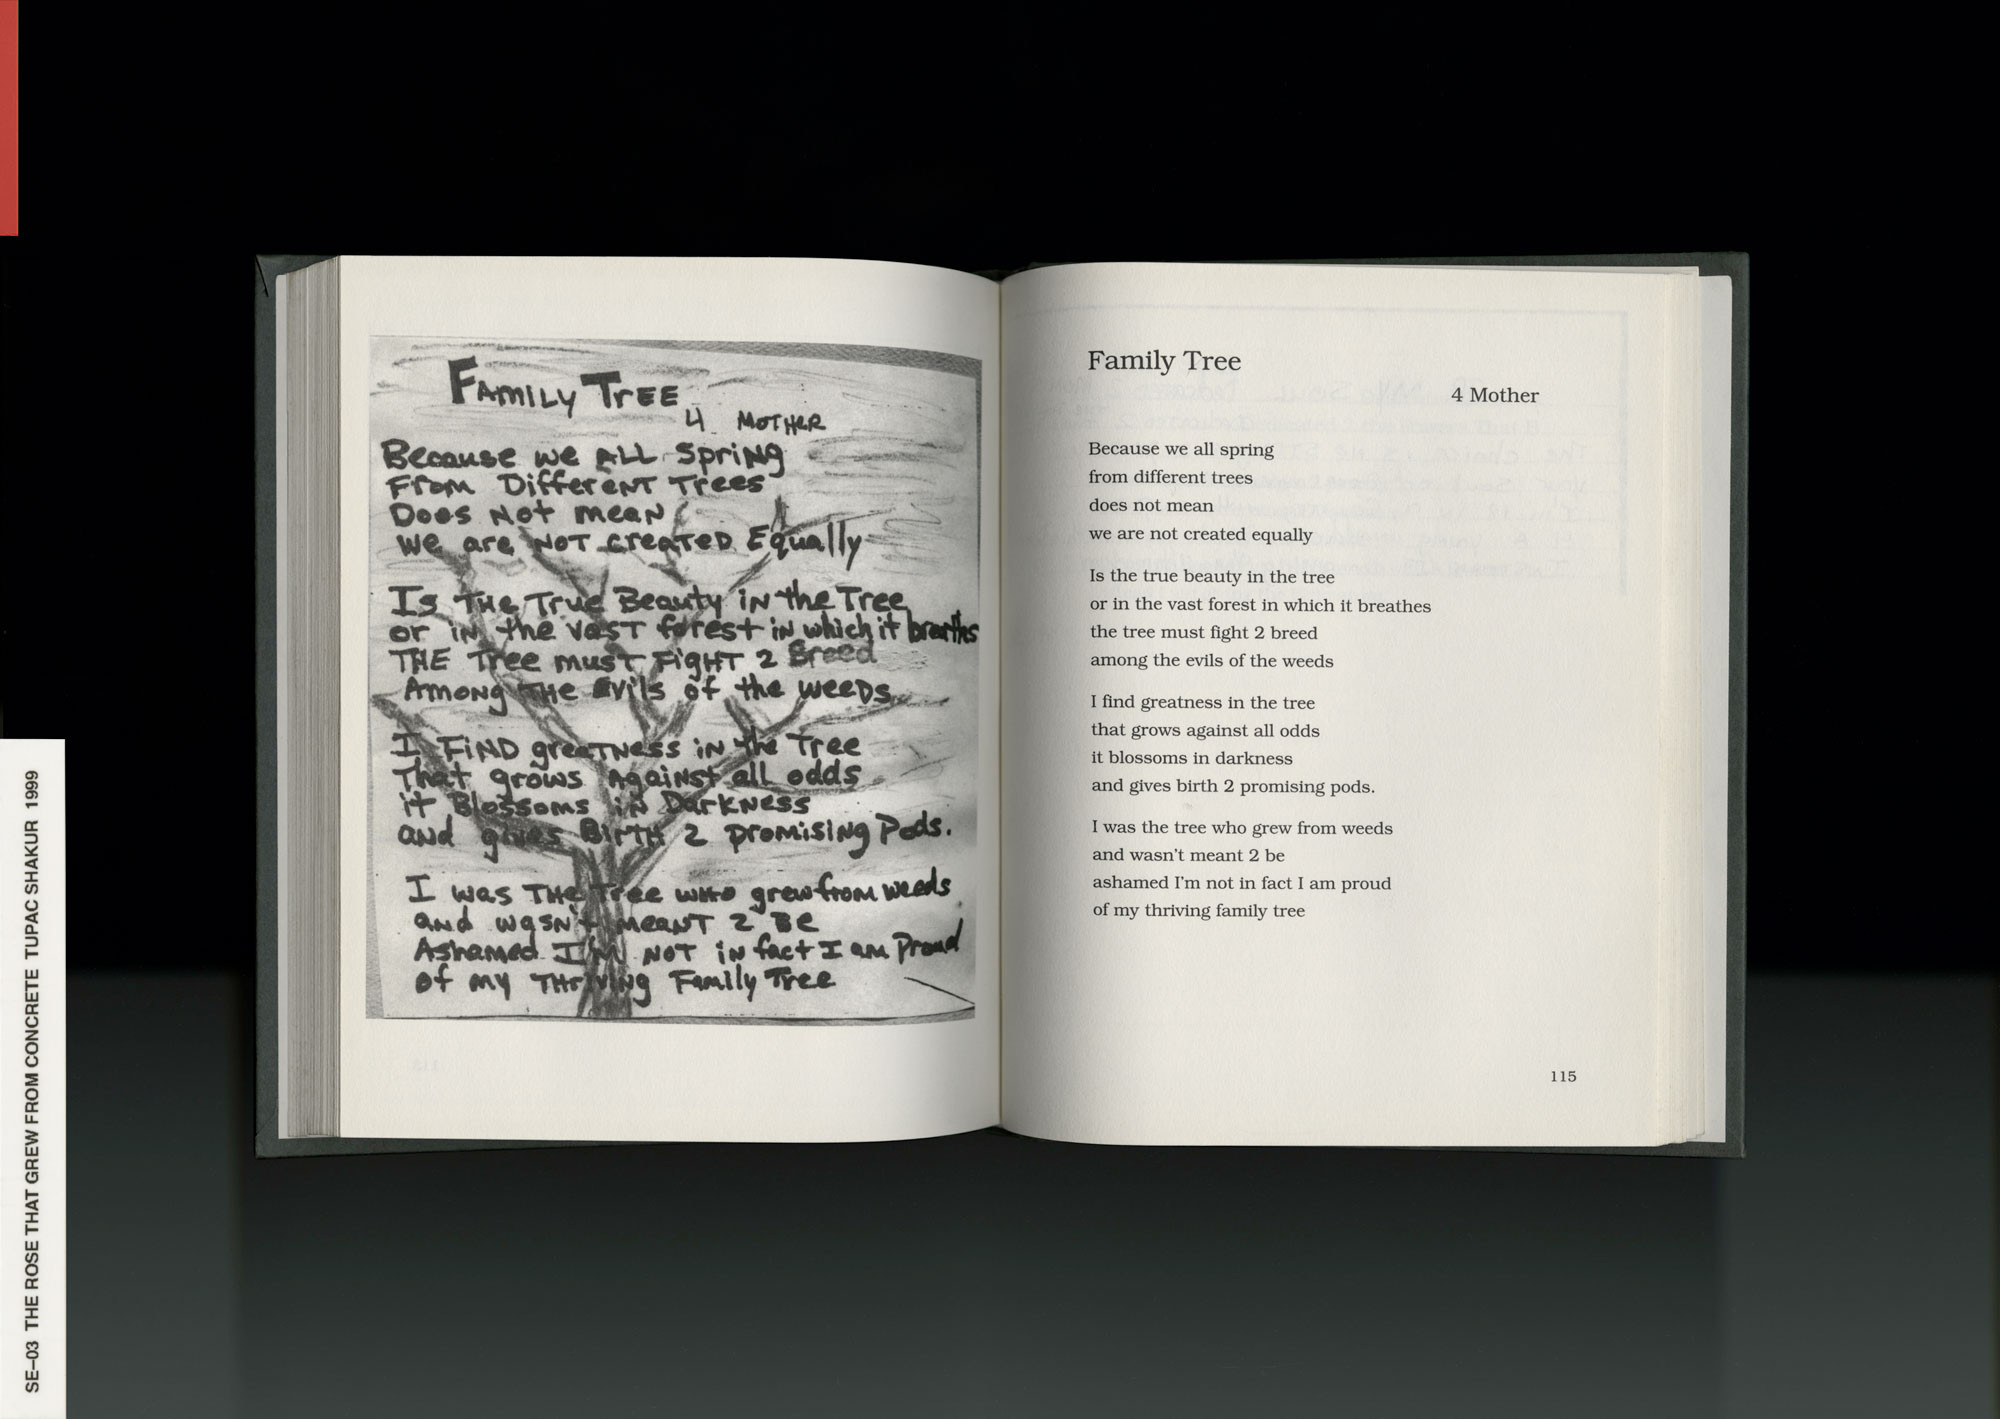 FAMILY TREE
4 MOTHER
Because we ALL Spring
From Different Trees
Does Not mean
we are NOT created Equally
Is THE True Beauty in the Tree
or in the vast forest in which it breaths
THE Tree must FiGHT 2 Breed
Among THE Evils of the weeds
I FiND greatness in the Tree
That grows Against all odds
it Blossoms in Darkness
and gives BirTH 2 promising Pods.
I was THE Tree who grew from weeds
and wasn't meant 2 Be
Ashamed I'm NOT in fact I am Proud
of my THriving Family Tree
Family Tree
4 Mother
Because we all spring
from different trees
does not mean
we are not created equally
Is the true beauty in the tree
or in the vast forest in which it breathes
the tree must fight 2 breed
among the evils of the weeds
I find greatness in the tree
that grows against all odds
it blossoms in darkness
and gives birth 2 promising pods.
I was the tree who grew from weeds
and wasn't meant 2 be
ashamed I'm not in fact I am proud
of my thriving family tree
115
SE–03 THE ROSE THAT GREW FROM CONCRETE TUPAC SHAKUR 1999